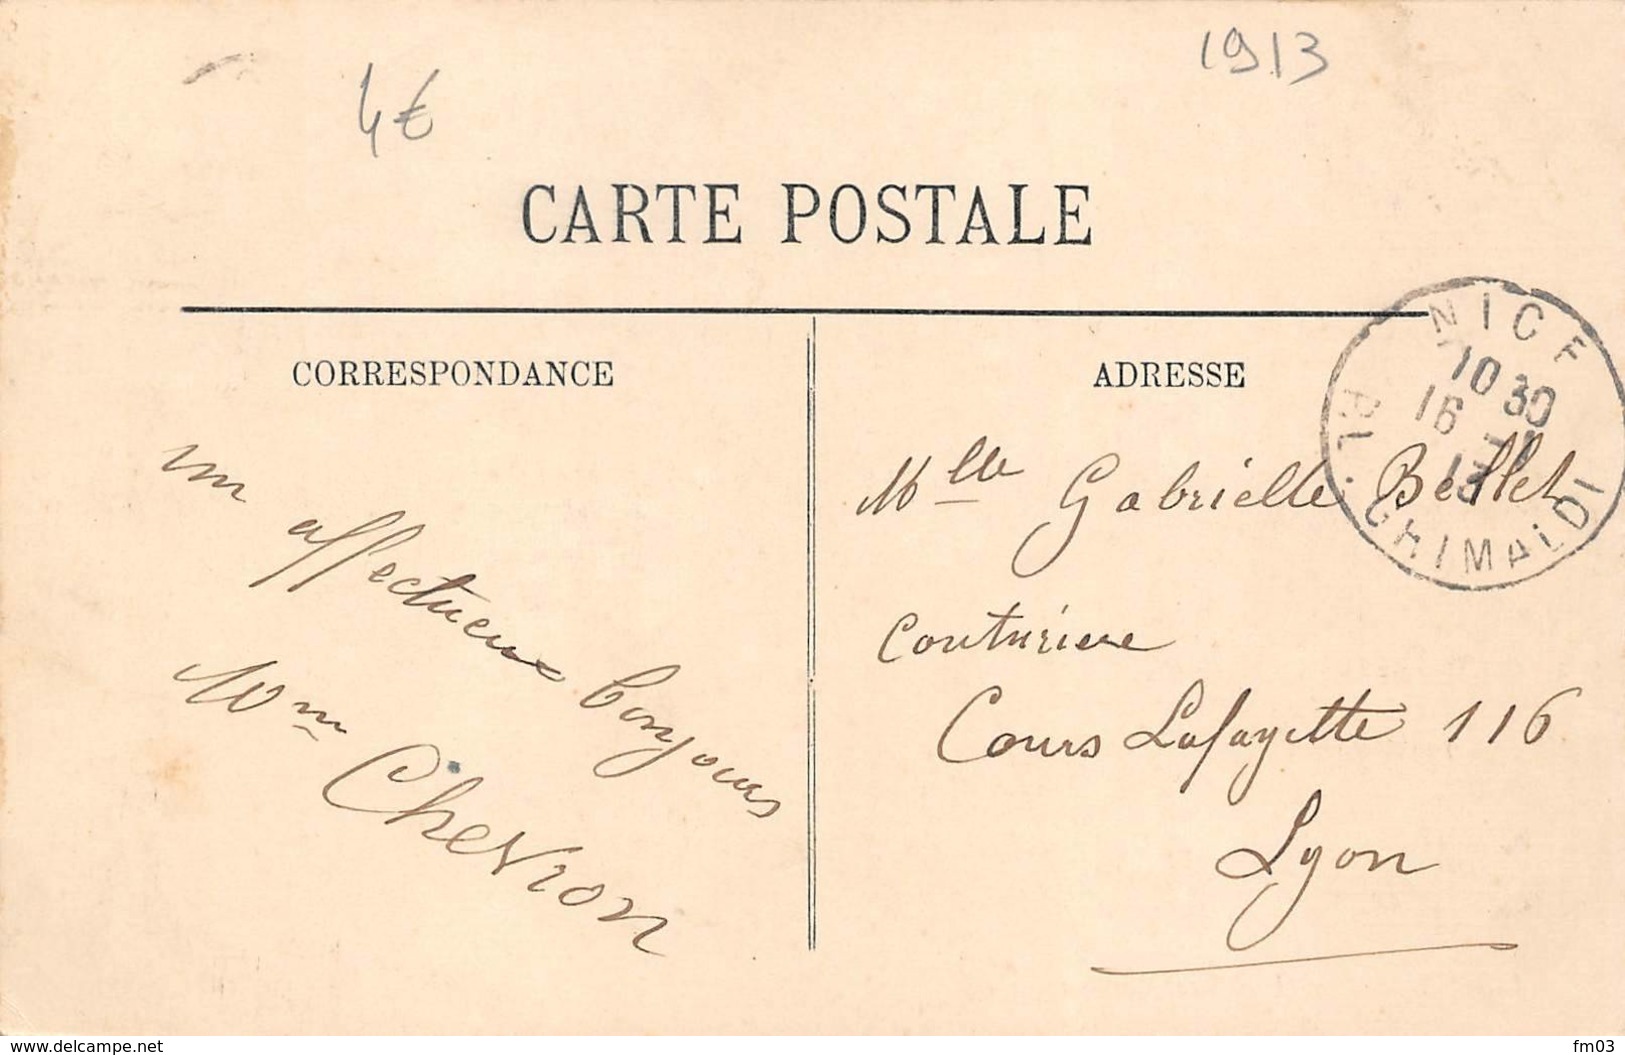 1913
4€
CARTE POSTALE
CORRESPONDANCE
un affectueux bonjours
Mme Chevron
ADRESSE
NICE
10 30
16
13
PL. GRIMALDI
Mlle Gabrielle Bellet
Couturiere
Cours Lafayette 116
Lyon
www.delcampe.net
fm03